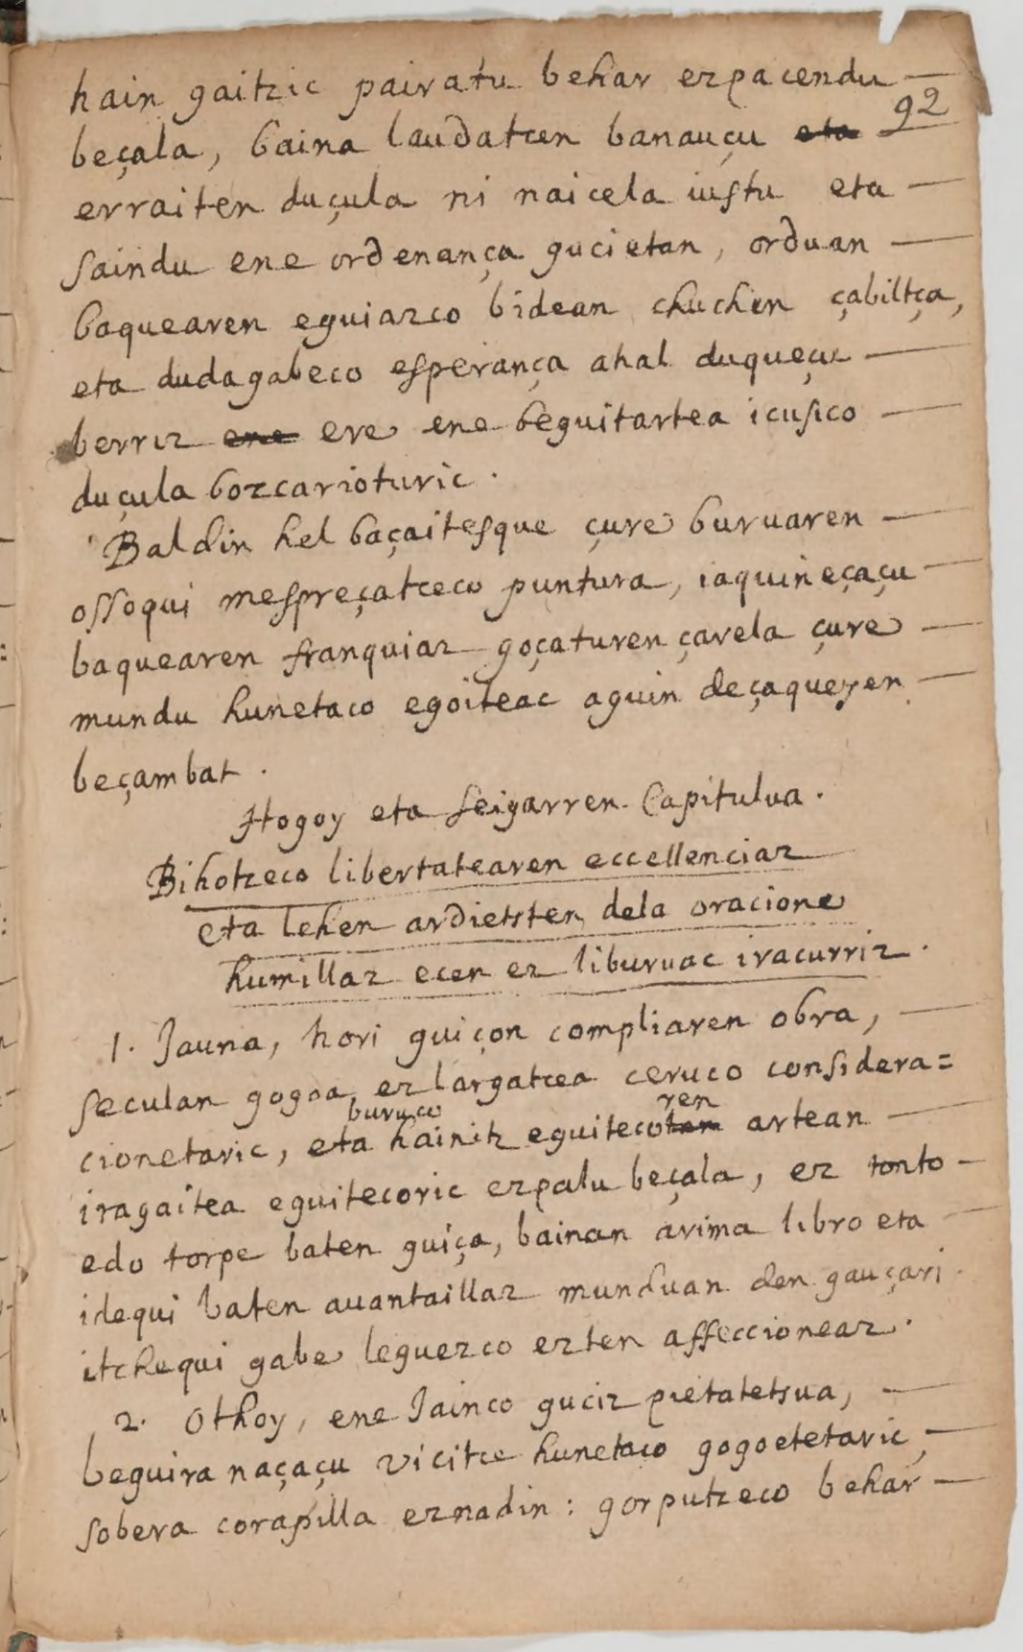 hain gaitzic pairatu behar ezpacendu —
92
beçala, baina laudatcen banauçu eta
erraiten duçula ni naicela iustu eta —
saindu ene ordenança gucietan, orduan —
baquearen eguiazco bidean chuchen çabiltça,
eta dudagabeco esperança ahal duqueçu —
berriz ene ere ene beguitartea icusico —
duçula bozcarioturic.
Baldin hel baçaitesque çure buruaren —
ossoqui mespreçatceco puntura, iaquineçaçu —
baquearen franquiaz goçaturen çarela çure —
mundu hunetaco egoiteac aguin deçaqueyen —
beçambat.
Hogoy eta seigarren Capitulua.
Bihotzeco libertatearen eccellenciaz
eta lehen ardietsten dela oracione
humillaz ecen ez liburuac iracurriz.
1. Jauna, hori guiçon compliaren obra, —
seculan gogoa ez largatcea ceruco considera=
buruco ren
cionetaric, eta hainitz eguitecotan artean —
iragaitea eguitecoric ezpalu beçala, ez tonto —
edo torpe baten guiça, bainan arima libro eta —
idequi baten auantaillaz munduan den gauçari
itchequi gabe leguezco ezten affeccioneaz.
2. Othoy, ene Jainco guciz pietatetsua, —
beguira naçaçu vicitce hunetaco gogoetetaric, —
sobera corapilla eznadin: gorputzeco behar —